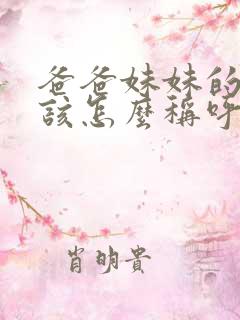 爸爸妹妹的
該怎麼稱呼
肖明貴